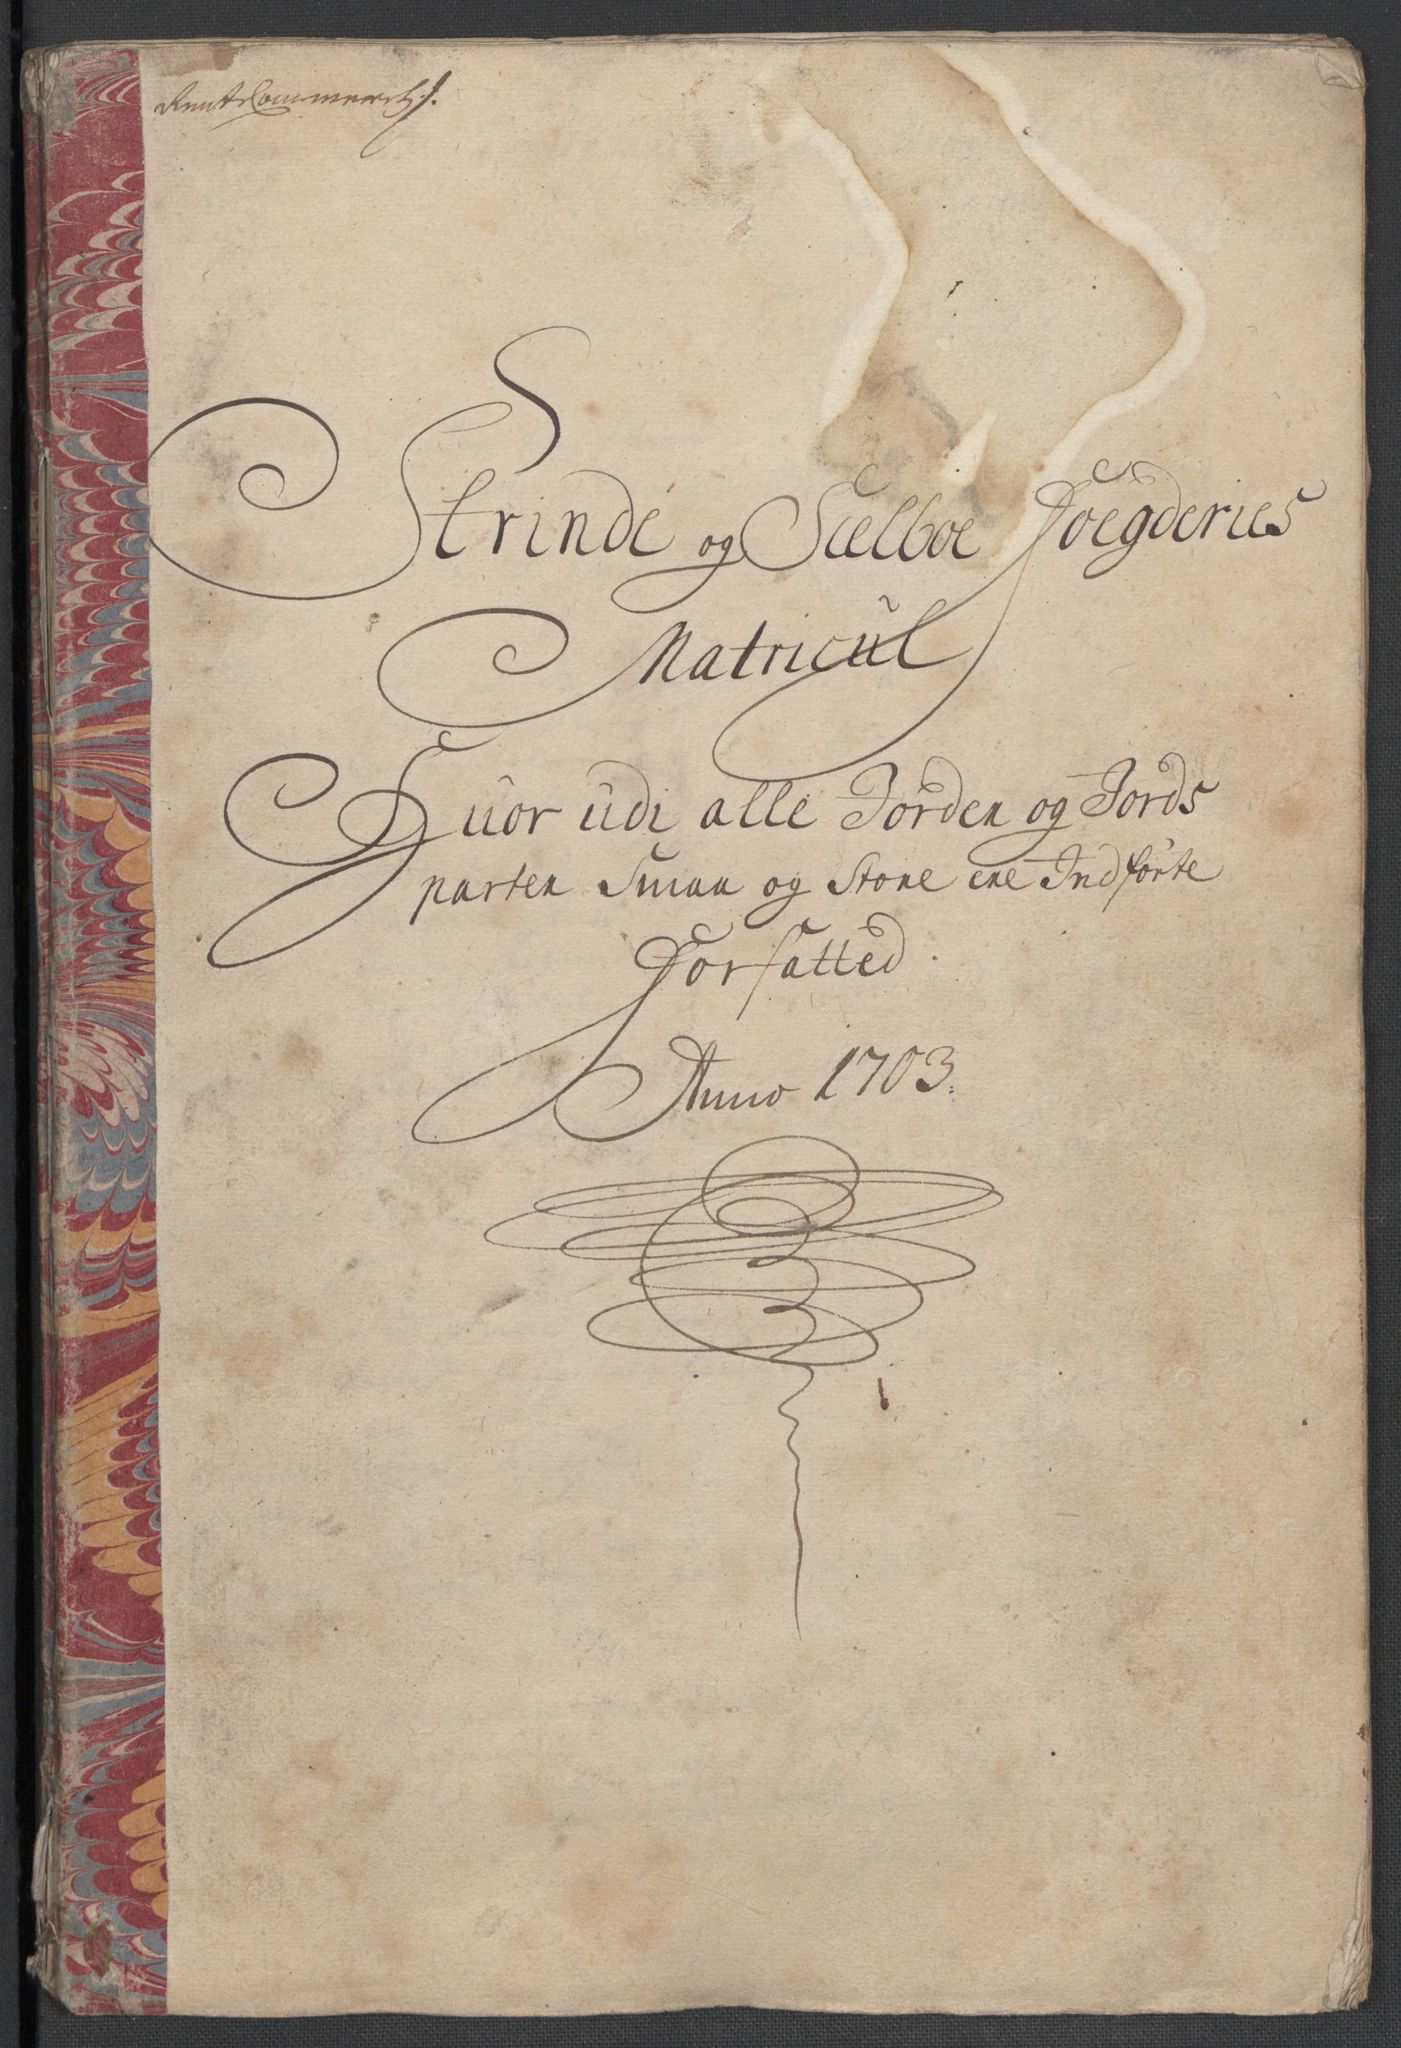 Rent Cammerch:/.
Strinde og Sælboe Foegderies
Matricul
Huor udi alle Jorder og Jords
parter Smaa og Store ere Indførte
Forfatted.
Anno 1703.